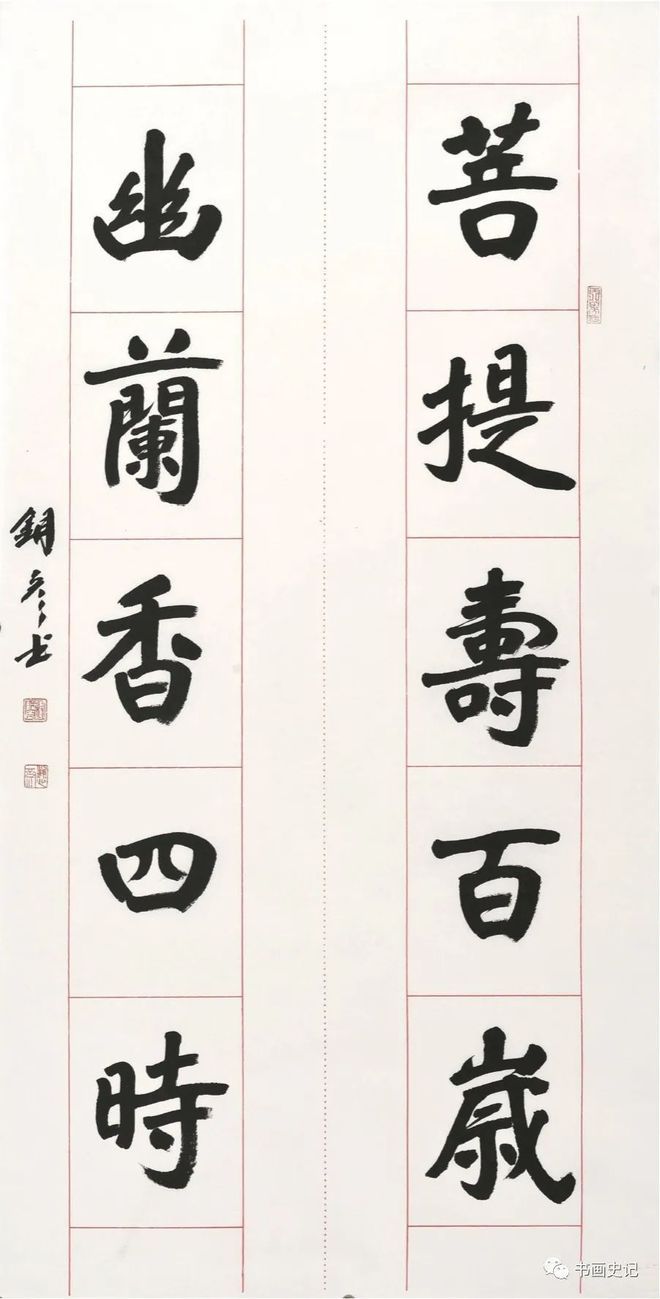 菩提壽百歲
幽蘭香四時
书画史记